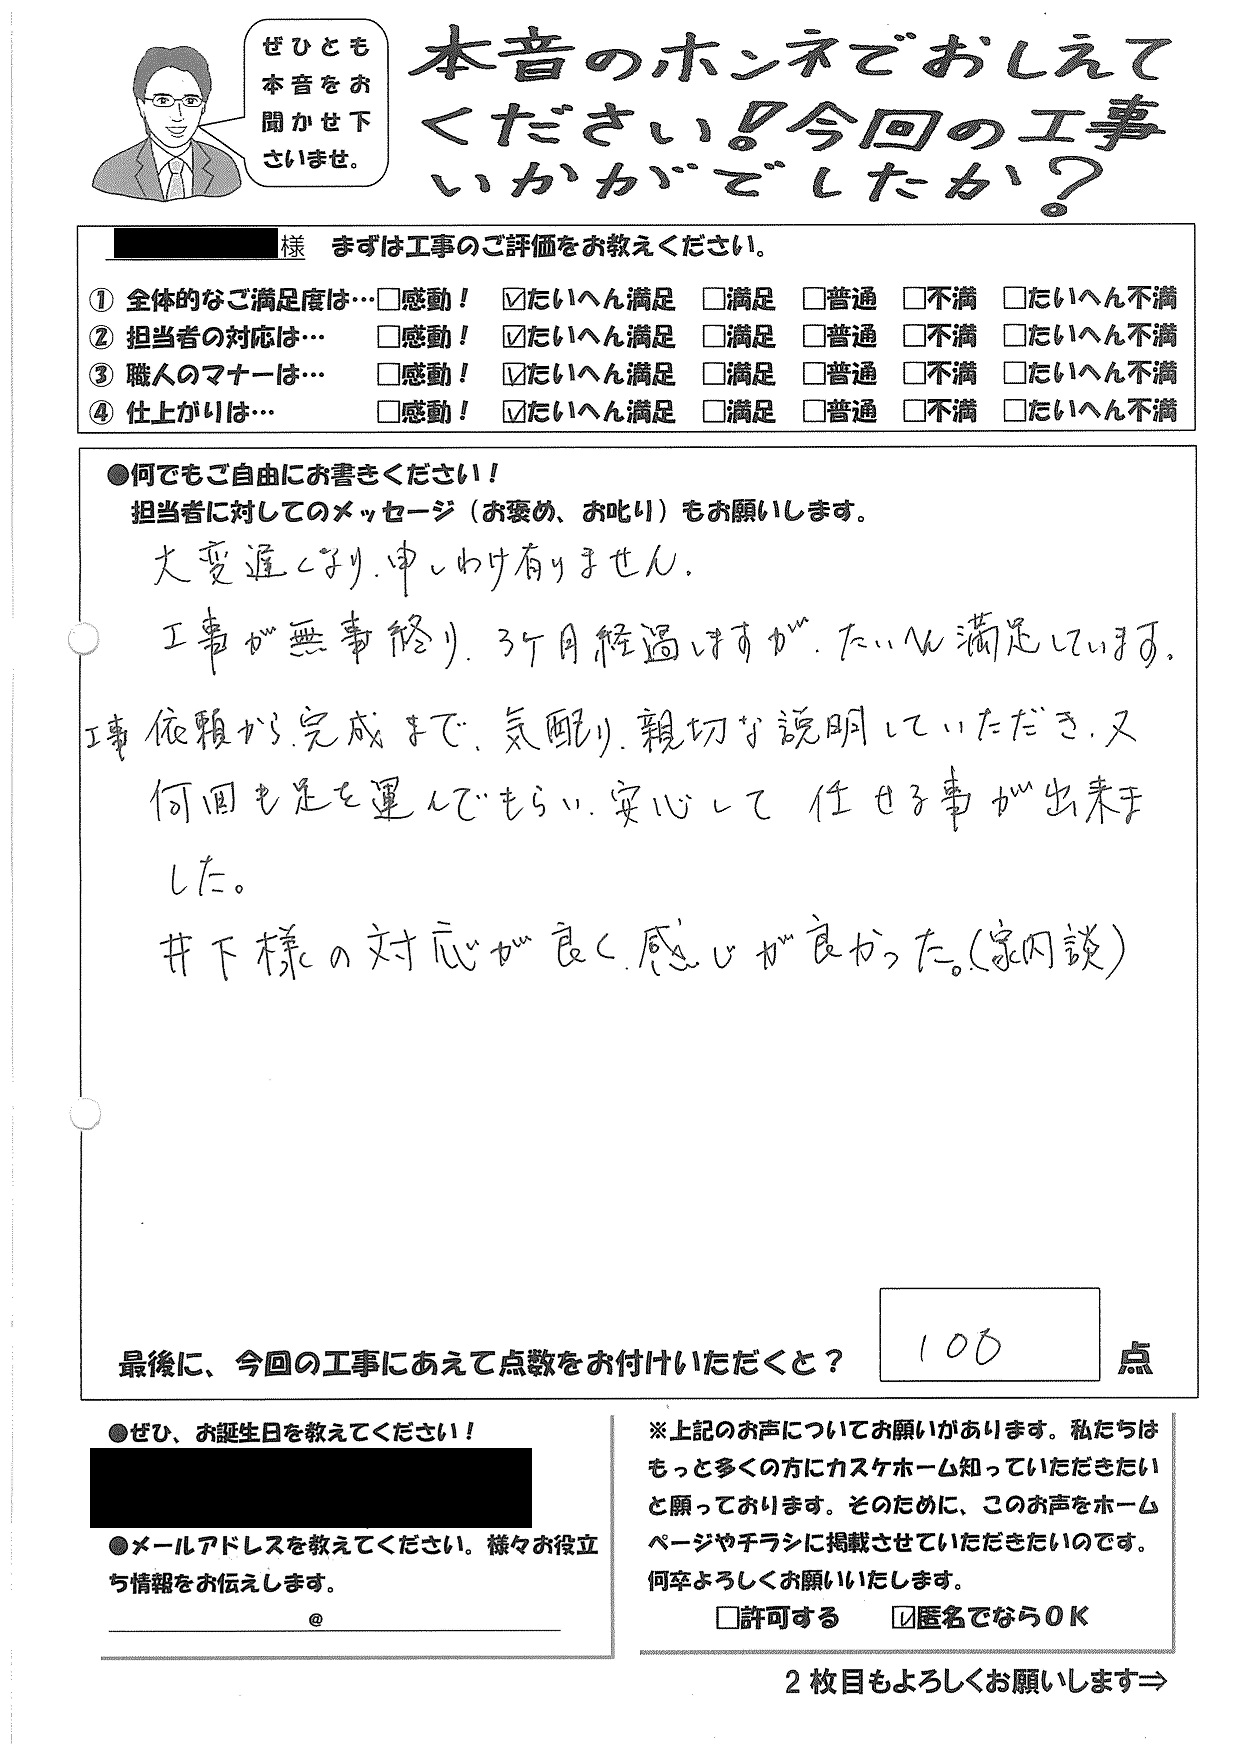 ぜひとも
本音をお
聞かせ下
さいませ。
本音のホンネでおしえて
ください!今回の工事
いかがでしたか?
様 まずは工事のご評価をお教えください。
① 全体的なご満足度は…□感動! ☑たいへん満足 □満足 □普通 □不満 □たいへん不満
② 担当者の対応は… □感動! ☑たいへん満足 □満足 □普通 □不満 □たいへん不満
③ 職人のマナーは… □感動! ☑たいへん満足 □満足 □普通 □不満 □たいへん不満
④ 仕上がりは… □感動! ☑たいへん満足 □満足 □普通 □不満 □たいへん不満
●何でもご自由にお書きください!
担当者に対してのメッセージ(お褒め、お叱り)もお願いします。
大変遅くなり、申しわけ有りません。
工事が無事終り、3ケ月経過しますが、たいへん満足しています。
工事依頼から、完成まで、気配り、親切な説明していただき、又
何回も足を運んでもらい、安心して任せる事が出来ま
した。
井下様の対応が良く、感じが良かった。(家内談)
最後に、今回の工事にあえて点数をお付けいただくと? 100 点
●ぜひ、お誕生日を教えてください!
●メールアドレスを教えてください。様々お役立
ち情報をお伝えします。
@
※上記のお声についてお願いがあります。私たちは
もっと多くの方にカスケホーム知っていただきたい
と願っております。そのために、このお声をホーム
ページやチラシに掲載させていただきたいのです。
何卒よろしくお願いいたします。
□許可する ☑匿名でならOK
2枚目もよろしくお願いします⇒